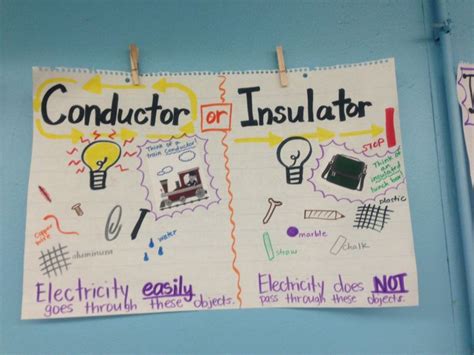 Conductor or Insulator
Think of a
train conductor!
STOP!
Think of
an
insulated
lunch box
Copper
wire
aluminum
water
plastic
marble
straw
chalk
Electricity easily
goes through these objects.
Electricity does NOT
pass through these objects.